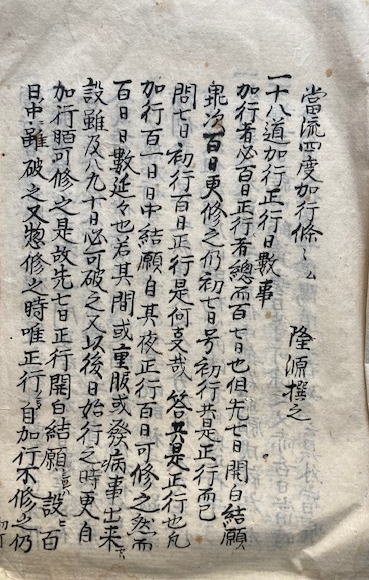 當流四度加行條〻
隆源撰之
一十八道加行正行日數事
加行者必百日正行者總而百七日也但先七日開白結願
畢次百日更修之仍初七日号初行共是正行而已
問七日初行百日正行是何支哉 答共是正行也凡
加行百一日日中結願自其夜正行百日可修之然而
百日日數延々也若其間或重服或發病事出来
設雖及八九十日必可破之又以後日始行之時更自
加行可修之是故先七日正行開白結願 設百
日中雖破之又惣修之時唯正行自加行不修之仍